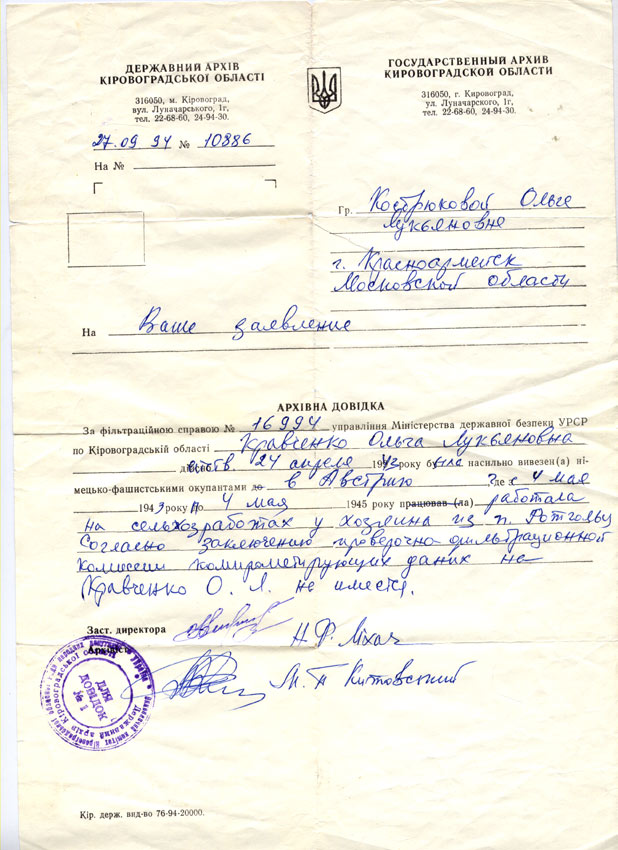 ДЕРЖАВНИЙ АРХІВ
КІРОВОГРАДСЬКОЇ ОБЛАСТІ
316050, м. Кіровоград,
вул. Луначарського, 1г,
тел. 22-68-60, 24-94-30.
ГОСУДАРСТВЕННЫЙ АРХИВ
КИРОВОГРАДСКОЙ ОБЛАСТИ
316050, г. Кировоград,
ул. Луначарского, 1г,
тел. 22-68-60, 24-94-30.
27.09 94 № 10886
На №
Гр. Кострюковой Ольге
Лукьяновне
г. Красноармейск
Московской области
На Ваше заявление
АРХІВНА ДОВІДКА
За фільтраційною справою № 16994 управління Міністерства державної безпеки УРСР
по Кіровоградській області Кравченко Ольга Лукьяновна
24 апреля року була насильно вивезен(а) ні-
мецько-фашистськими окупантами до в Австрию де с 4 мая
1943 року по 4 мая 1945 року працював (ла) работала
на сельхозработах у хозяина из п. Ротгольц
Согласно заключению проверочно фильтрационной
комиссии компрометирующих даних на
Кравченко О. Л. не имется.
Заст. директора Н.Ф. Міхач
Архівіст М. П. Китовський
ДЛЯ
ДОВІДОК
№ 1
Кір. держ. вид-во 76-94-20000.